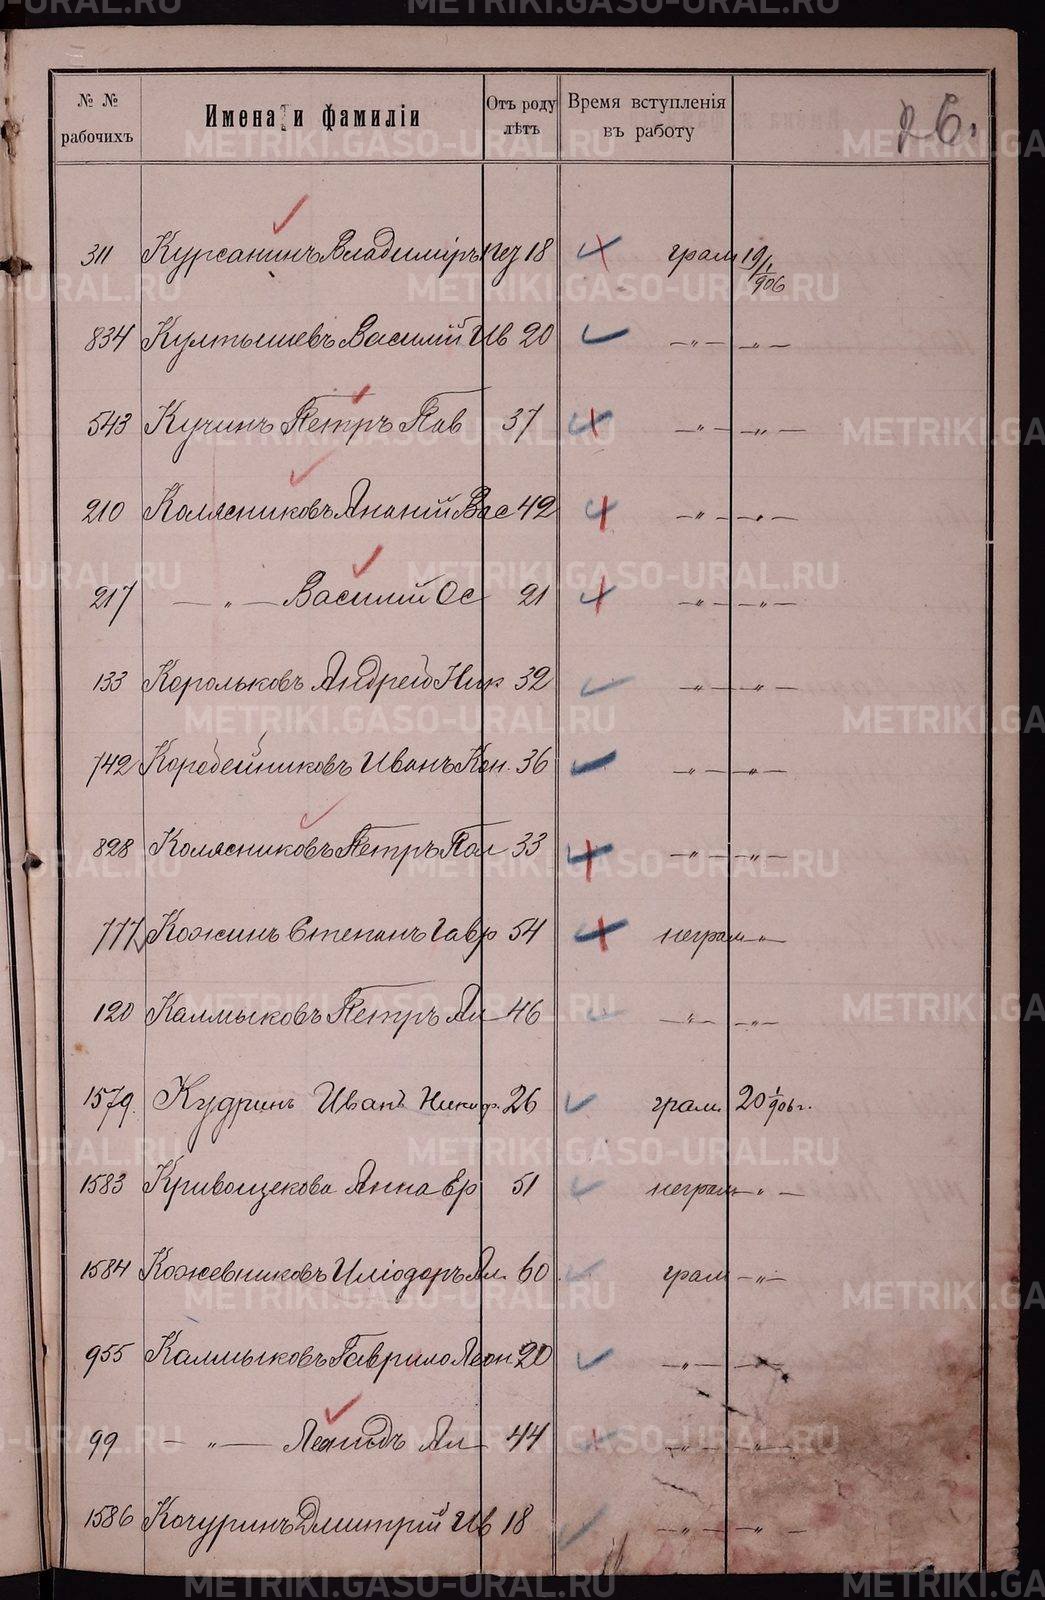 METRIKI.GASO-URAL.RU
26.
№ № рабочихъ Имена и фамиліи Отъ роду лѣтъ Время вступленія въ работу
311 Курсанинъ Владиміръ 18 грам 19/I 906
834 Култышевъ Василій Ив 20 —„— —„—
543 Кучинъ Петръ Пав 37 —„— —„—
210 Колясниковъ Ананій Вас 42 —„— —„—
217 —„— Василій Ос 21 —„— —„—
133 Корольковъ Андрей Ник 32 —„— —„—
742 Коробейниковъ Иванъ Кон. 36 —„— —„—
828 Колясниковъ Петръ Пол 33 —„— —„—
777 Кожинъ Степанъ Гавр 54 неграм —„—
120 Калмыковъ Петръ Ал 46 —„— —„—
1579. Кудринъ Иванъ Никиф. 26 грам. 20 1/906 г.
1583 Кривощекова Анна Ер 51 неграм —„—
1584 Кожевниковъ Иліодоръ Ал. 60 грам —„—
955 Калмыковъ Гаврило Леон 20 —„— —„—
99 —„— Леонидъ Ал 44 —„— —„—
1586 Кочуринъ Дмитрій Ив 18 —„— —„—